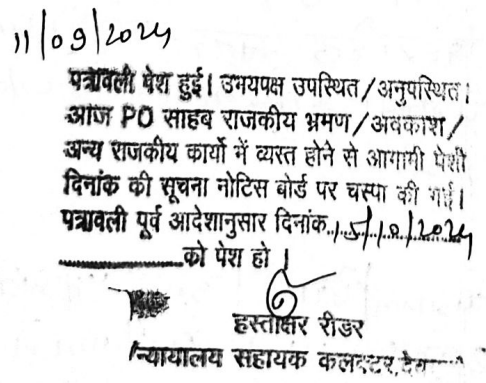 11/09/2024
पत्रावली पेश हुई। उभयपक्ष उपस्थित/अनुपस्थित।
आज PO साहब राजकीय भ्रमण/अवकाश/
अन्य राजकीय कार्यो में व्यस्त होने से आगामी पेशी
दिनांक की सूचना नोटिस बोर्ड पर चस्पा की गई।
पत्रावली पूर्व आदेशानुसार दिनांक
को पेश हो।
हस्ताक्षर रीडर
न्यायालय सहायक कलक्टर,